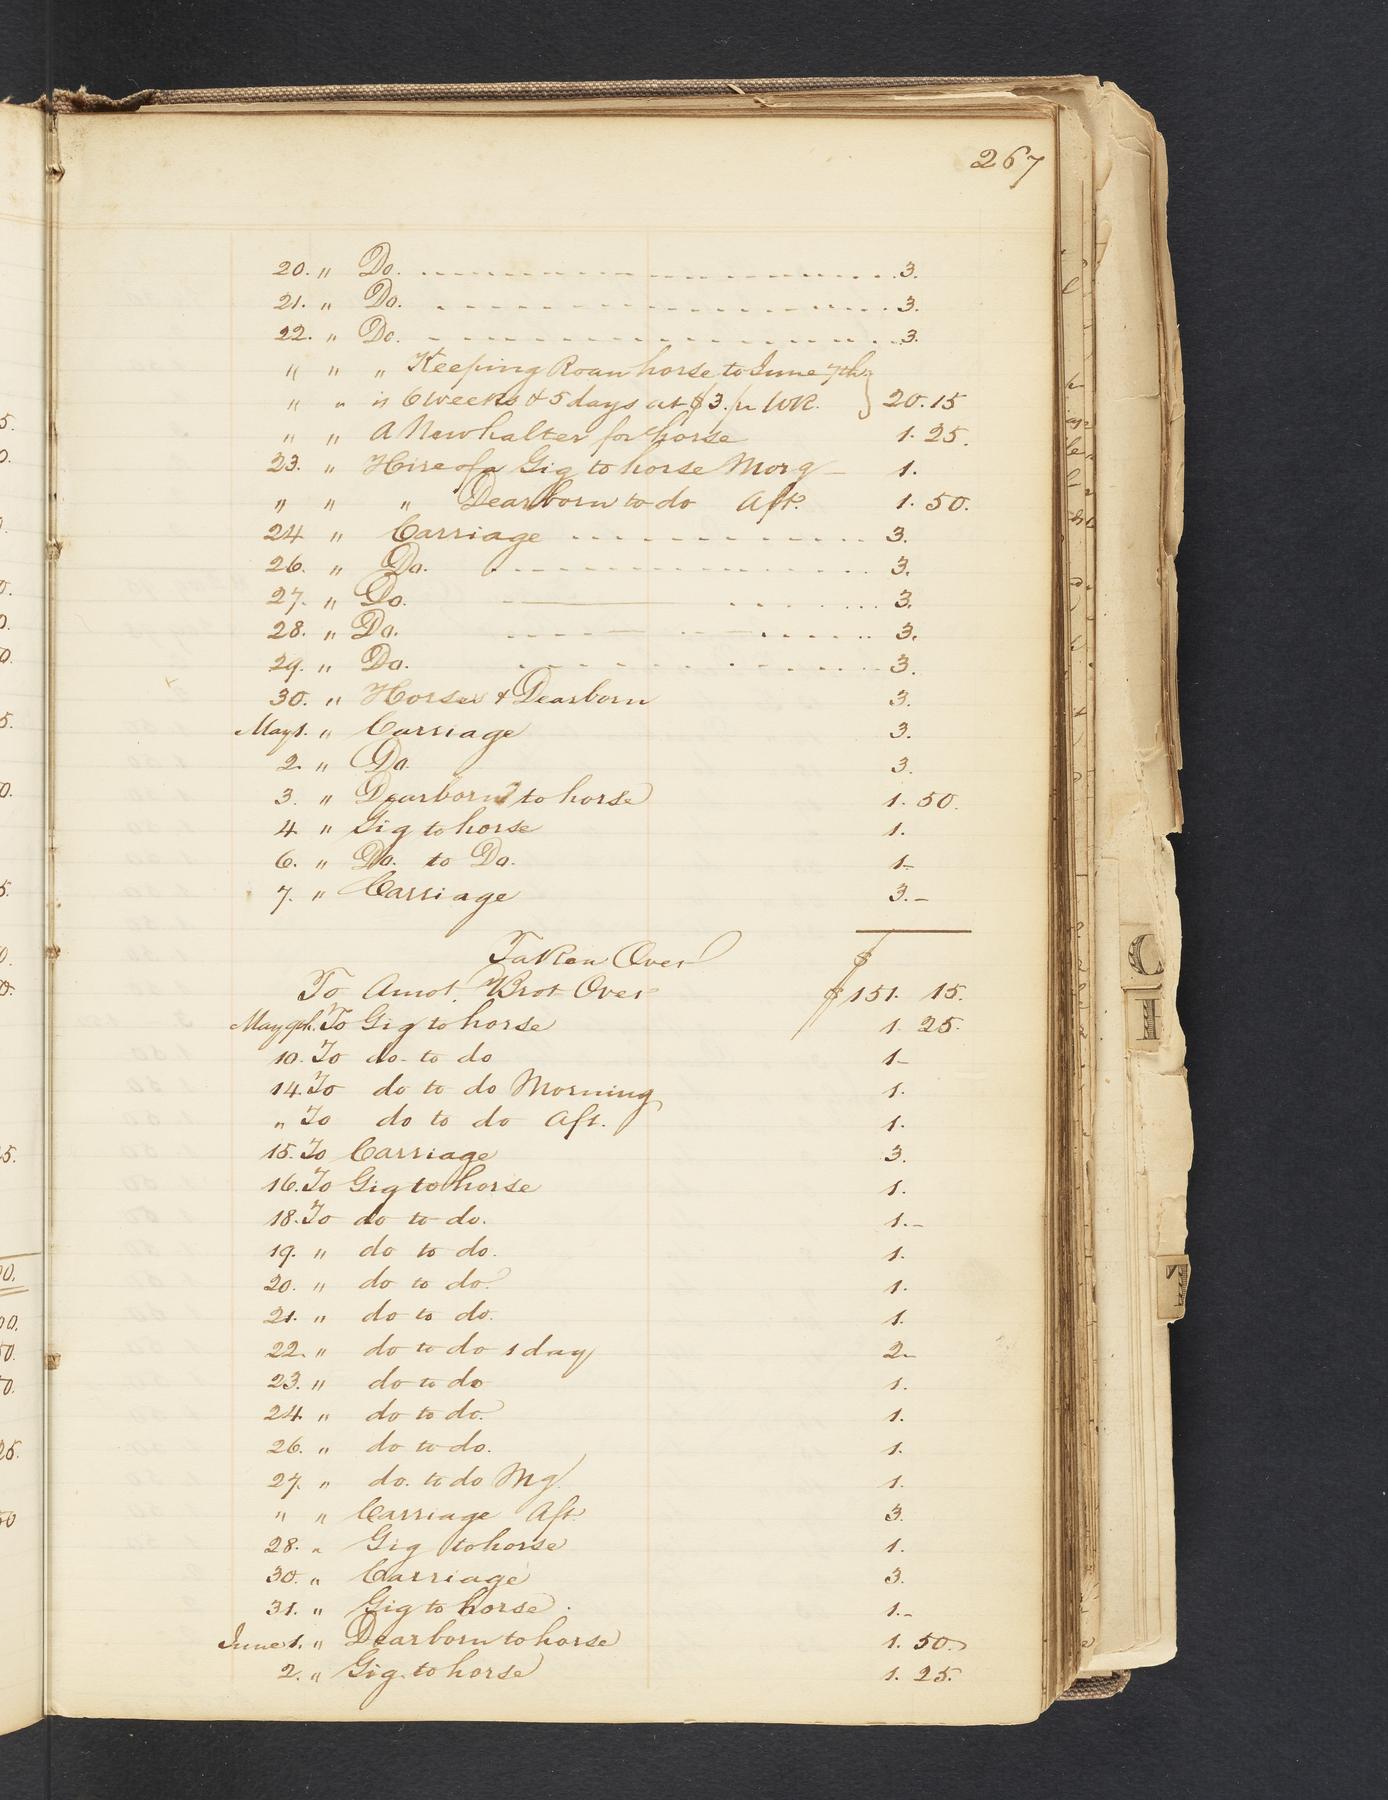 267
20. " Do. 3.
21. " Do. 3.
22. " Do. 3.
" " " Keeping Roan horse to June 7th
" " is 6 weeks & 5 days at $3. pr WK. } 20.15
" " A New halter for horse 1.25.
23. " Hire of a Gig to horse Morg 1.
" " " Dearborn to do Aft. 1.50.
24 " Carriage 3.
26. " Do. 3.
27. " Do. 3.
28. " Do. 3.
29. " Do. 3.
30. " Horses & Dearborn 3.
May 1. " Carriage 3.
2. " Do. 3.
3. " Dearborn to horse 1.50.
4 " Gig to horse 1.
6. " Do. to Do. 1-
7. " Carriage 3.-
Taken Over $
To Amot. Brot Over $151.15.
May 9th. To Gig to horse 1.25.
10. To do- to do 1-
14. To do to do Morning 1.
" To do to do Aft. 1.
15. To Carriage 3.
16. To Gig to horse 1.
18. To do to do. 1.-
19. " do to do. 1.
20. " do to do. 1.
21. " do to do. 1.
22. " do to do 1 day 2-
23. " do to do 1.
24 " do to do. 1.
26. " do to do. 1.
27. " do. to do Mg 1.
" " Carriage Aft. 3.
28. " Gig to horse 1.
30. " Carriage 3.
31. " Gig to horse. 1.-
June 1. " Dearborn to horse 1.50.
2. " Gig to horse 1.25.